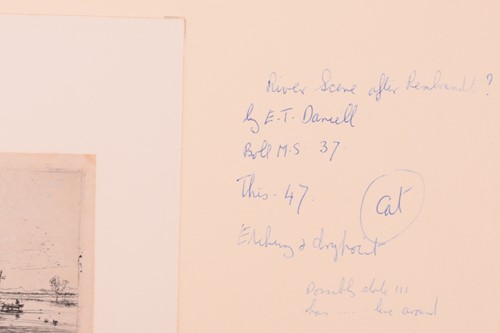 River Scene after Rembrandt?
by E.T. Daniell
Boll M.S 37
This - 47.
Cat
Etching & drypoint
Possibly state III
has ..... line around